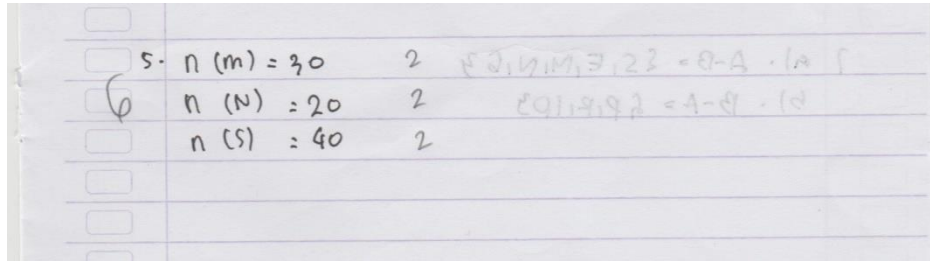 5. n (m) = 30 2
6 n (N) = 20 2
n (S) = 40 2